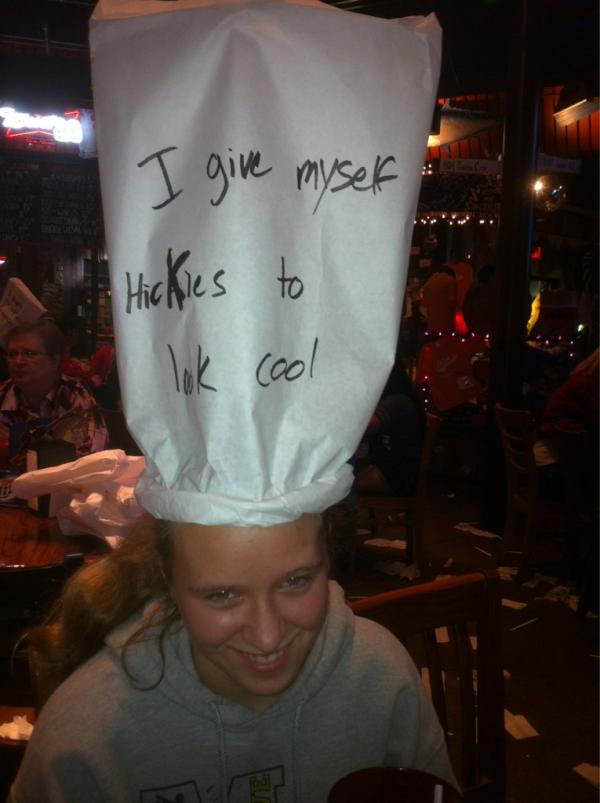 I give myself
HicKies to
look cool